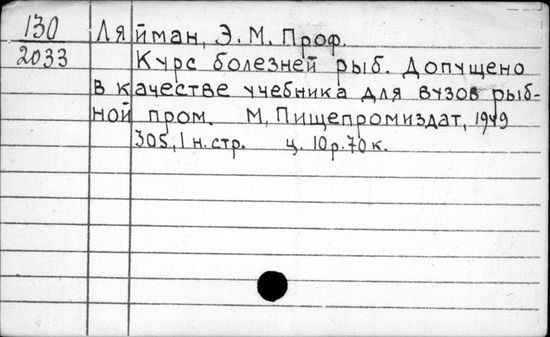 130
2033
Ляйман, Э. М. Проф.
Курс болезней рыб. Допущено
в качестве учебника для вузов рыб-
ной пром. М, Пищепромиздат, 1949
305, 1 н. стр. ц. 10 р. 70 к.